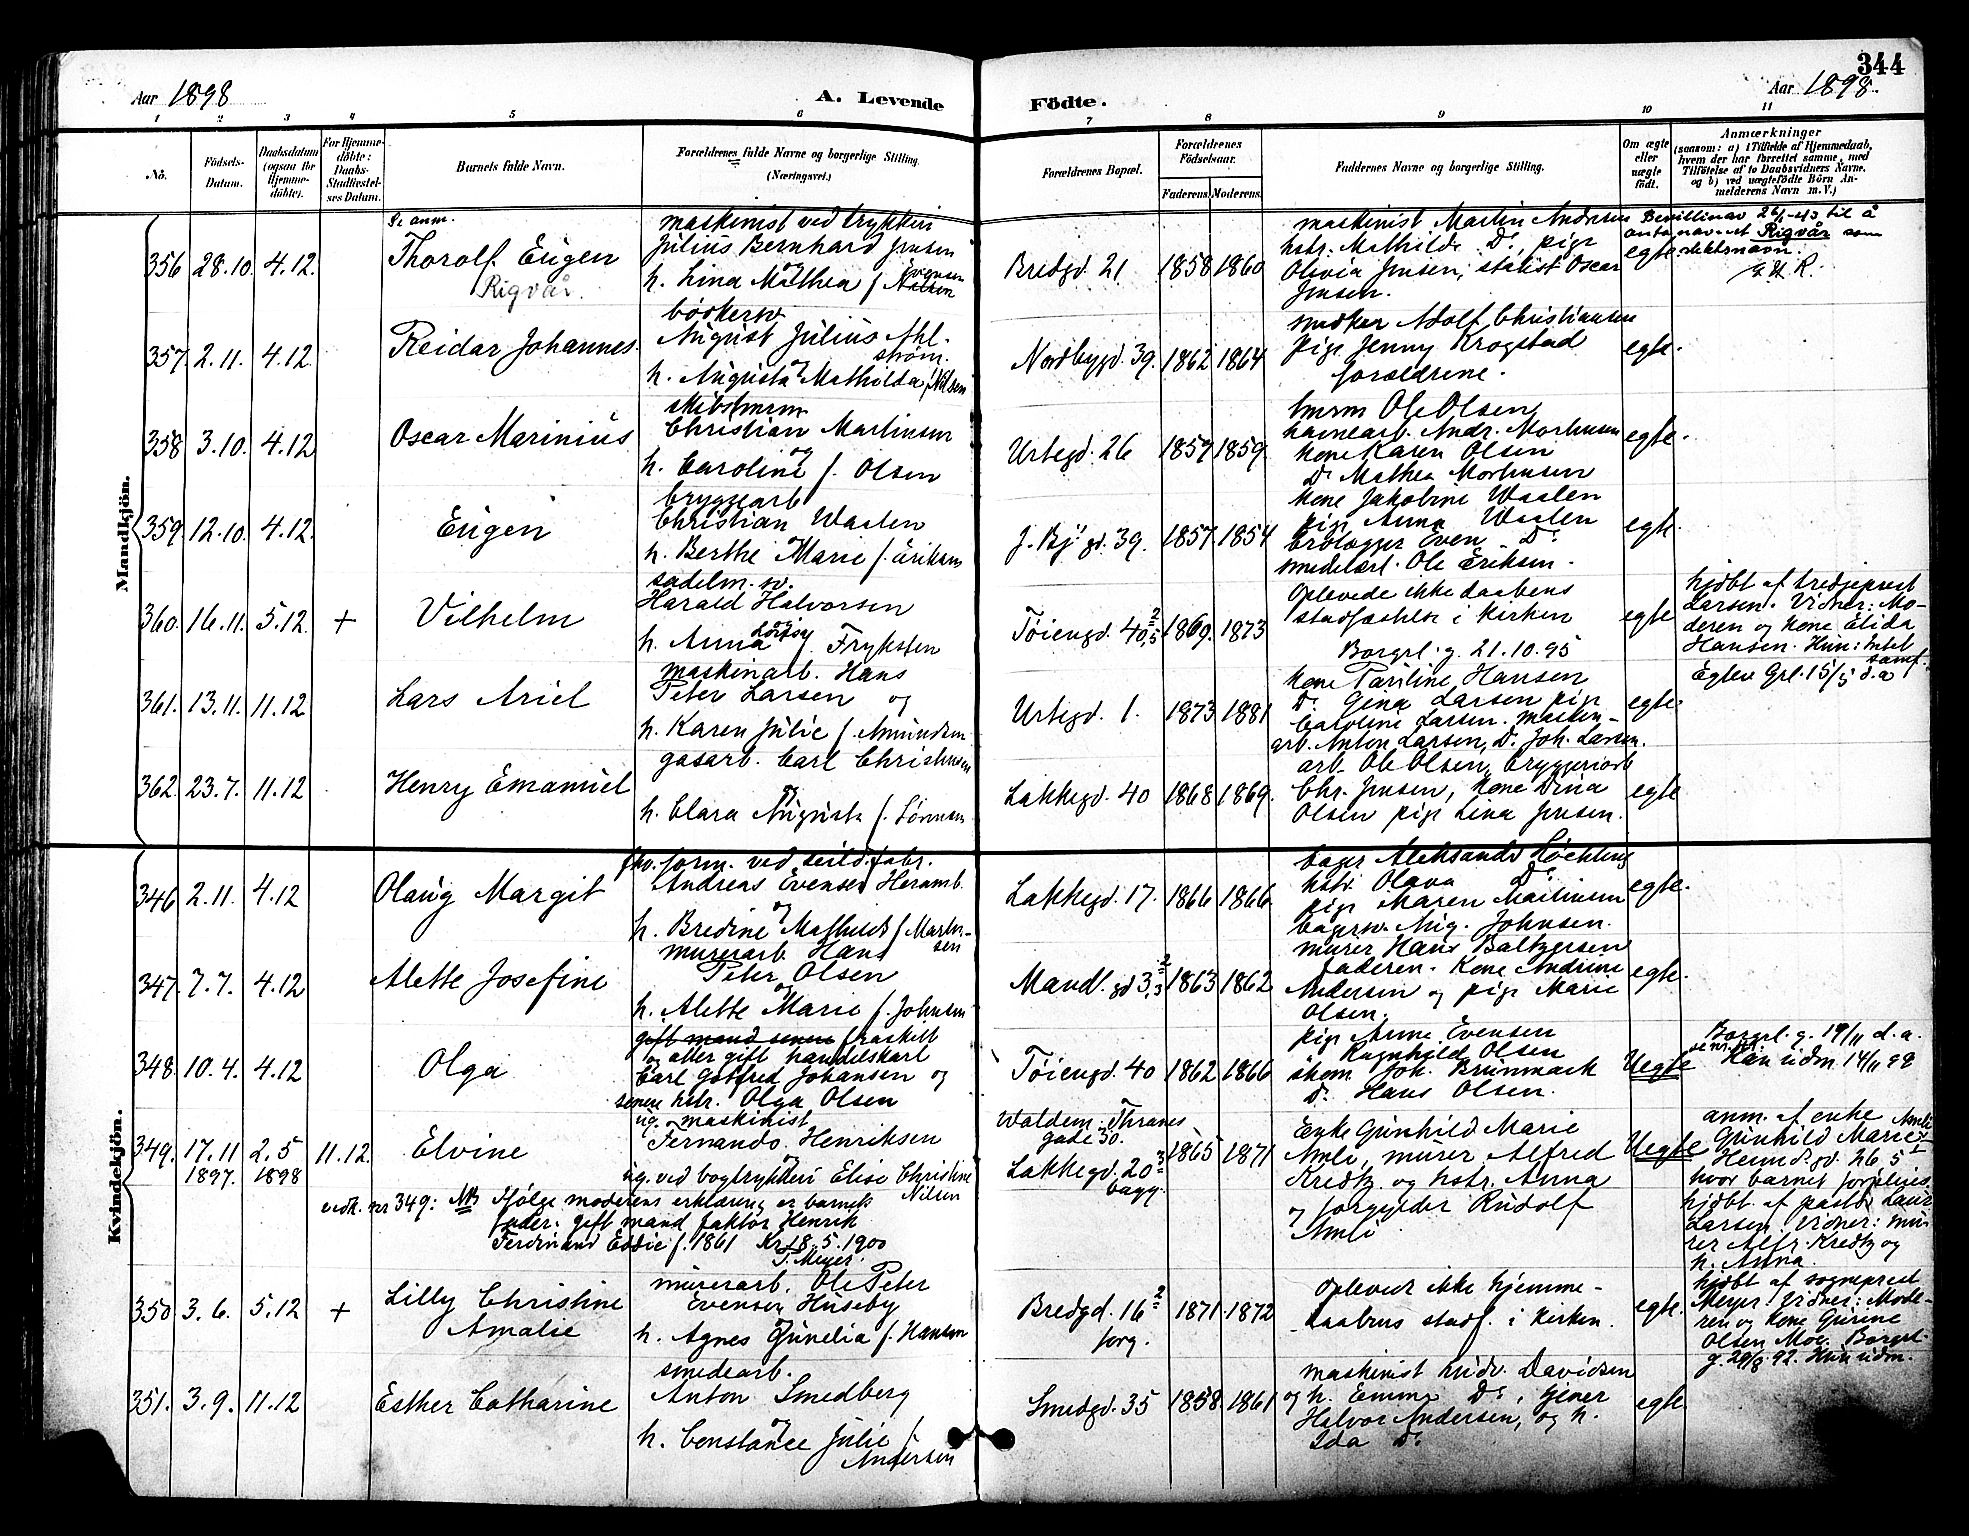 344
Aar 1898
A. Levende
Födte.
Aar 1898.
1 2 3 4 5 6 7 8 9 10 11
No.
Födsels-
Datum.
Daabsdatum
(ogsaa for
Hjemme-
döbte).
For Hjemme-
döbte:
Daabs-
Stadfæstel-
ses Datum.
Barnets fulde Navn.
Forældrenes fulde Navne og borgerlige Stilling.
(Næringsvei.)
Forældrenes Bopæl.
Forældrenes
Födselsaar.
Faderens Moderens.
Faddernes Navne og borgerlige Stilling.
Om ægte
eller
uægte
födt.
Anmærkninger
(saasom: a) i Tilfælde af Hjemmedaab,
hvem der har forrettet samme, med
Tilföielse af to Daabsvidners Navne,
og b) ved uægtefödte Börn An-
melderens Navn m. V.)
Mandkjön.
356 28.10. 4.12.
Se anm.
Thorolf Eugen
Rigvår.
maskinist ved trykkeri
Julius Bernhard Jensen
og
h. Lina Mathea f.
Bredgd. 21 1858 1860
maskinist Martin Andersen
hstr. Mathilde Do, pige
Olivia Jensen, Oscar
Jensen.
egte.
Bevilling av 26/1-43 til å
anta navnet Rigvår som
slektsnavn.
357. 2.11. 4.12.
Reidar Johannes.
bödkersv.
August Julius Ahl-
ström.
og
h. Augusta Mathilda f. Nilsen
Nordbygd. 39. 1862 1864
snedker Adolf Christiansen
pige Jenny Krogstad
forældrene.
egte.
358 3.10. 4.12
Oscar Marinius
skibstmrm.
Christian Martinsen
og
h. Caroline f. Olsen
Urtegd. 26 1857 1859.
tmrm. Ole Olsen
havnearb. Andr. Mortensen
kone Karen Olsen
Do Mathea Mortensen
egte.
359. 12.10. 4.12.
Eugen
bryggearb
Christian Waalen
h. Berthe Marie f. Eriksen
J. Bj. gd. 39. 1857. 1854
kone Jakobine Waalen
pige Anna Waalen
brolægger Even Do
smedelærl. Ole Eriksen.
egte.
360. 16.11. 5.12. +
Vilhelm
sadelm. sv.
Harald Halvorsen
h. Anna Lovisy f. Fryksten
Töiengd. 40, 1869. 1873
Oplevede ikke daabens
stadfæstelse i kirken
Borgrl. g. 21.10.95
egte
hjdbt af tredjeprest
Larsen. Vidner: Mo-
deren og kone Elida
Hansen. Hun: Intet
samf.
361. 13.11. 11.12
Lars Ariel
maskinarb. Hans
Peter Larsen og
h. Karen Julie f. Amundsen
Urtegd. 1. 1873 1881
kone Pauline Hansen
Do Gina Larsen pige
Caroline Larsen. maskin-
arb. Anton Larsen, Do Joh. Larsen.
egte.
362. 23.7. 11.12
Henry Emanuel
gasarb. Carl Christensen
og
h. Clara Augusta f. Sörensen
Lakkegd. 40 1868 1869.
arb. Ole Olsen, bryggeriarb
Chr. Jensen, kone Dina
Olsen pige Lina Jensen.
egte
Kvindekjön.
346 2.11. 4.12
Olaug Margit
fhv. form. ved seild. fabr.
Andreas Evensen Heramb.
og
h. Bredine Mathilde f. Martin-
sen
Lakkegd. 17. 1866 1866
bager Aleksandr
hstr. Olava Do
pige Maren Martinsen
bagersv. Aug. Johnsen.
egte.
347. 7.7. 4.12
Alette Josefine
murerarb. Hans
Peter Olsen
og
h. Alette Marie f. Johnsen
Mandl. gd 3, 1863 1862
murer Hans Baltzersen
faderen. kone Andrine
Andersen og pige Marie
Olsen.
egte.
348. 10.4. 4.12
Olga
gift mand senere fraskilt
og atter gift handelskarl
Carl Gotfred Johansen og
senere hstr. Olga Olsen
Töiengd. 40 1862 1866
pige Anne Evensen
Ragnhild Olsen
skom. Joh. Brunmark
Do Hans Olsen.
Uegte
Borgrl. g. 19/11 d. a.
Han udm. 14/11 98
349. 17.11 1897. 2.5 1898 11.12.
Elvine
ug. maskinist
Fernando Henriksen
og
ug. ved bogtrykkeri Elise Christine
Nilsen
Waldem. Thranes
gade 30.
Lakkegd. 20
bagg.
1865 1871
Enke Gunhild Marie
Amli, murer Alfred
Kredtz og hstr. Anna
og forgylder Rudolf
Amli
Uegte
anm. af enke Amli
Gunhild Marie
hvor barnet forpleies.
hjdbt af pastor Laur.
Larsen. Vidner: mu-
rer Alfr. Kredtz og
h. Anna.
vedk. nr 349: NB Ifølge moderens erklæring er barnets
fader: gift mand faktor Henrik
Ferdinand Eddie f. 1861 Kr. 18.5.1900
T. Meyer.
350 3.6. 5.12 +
Lilly Christine
Amalie
murerarb. Ole Peter
Evensen Huseby
h. Agnes Gunelia f. Hansen
Bredgd. 16
forg.
1871 1872
oplevede ikke hjemme-
daabens stadf. i kirken.
egte.
hjdbt af sogneprest
Meyer. Vidner: Mode-
ren og kone Gurine
Olsen Moe. Borgrl.
g. 29/8 92. Hun udm.
351. 3.9. 11.12
Esther Catharine
smedearb.
Anton Smedberg
og
h. Constance Julie f.
Andersen
Smedgd. 35 1858 1861
maskinist Ludv. Davidsen
og h. Emma Do, tjener
Halvor Andersen, og h.
Ida Do
egte.